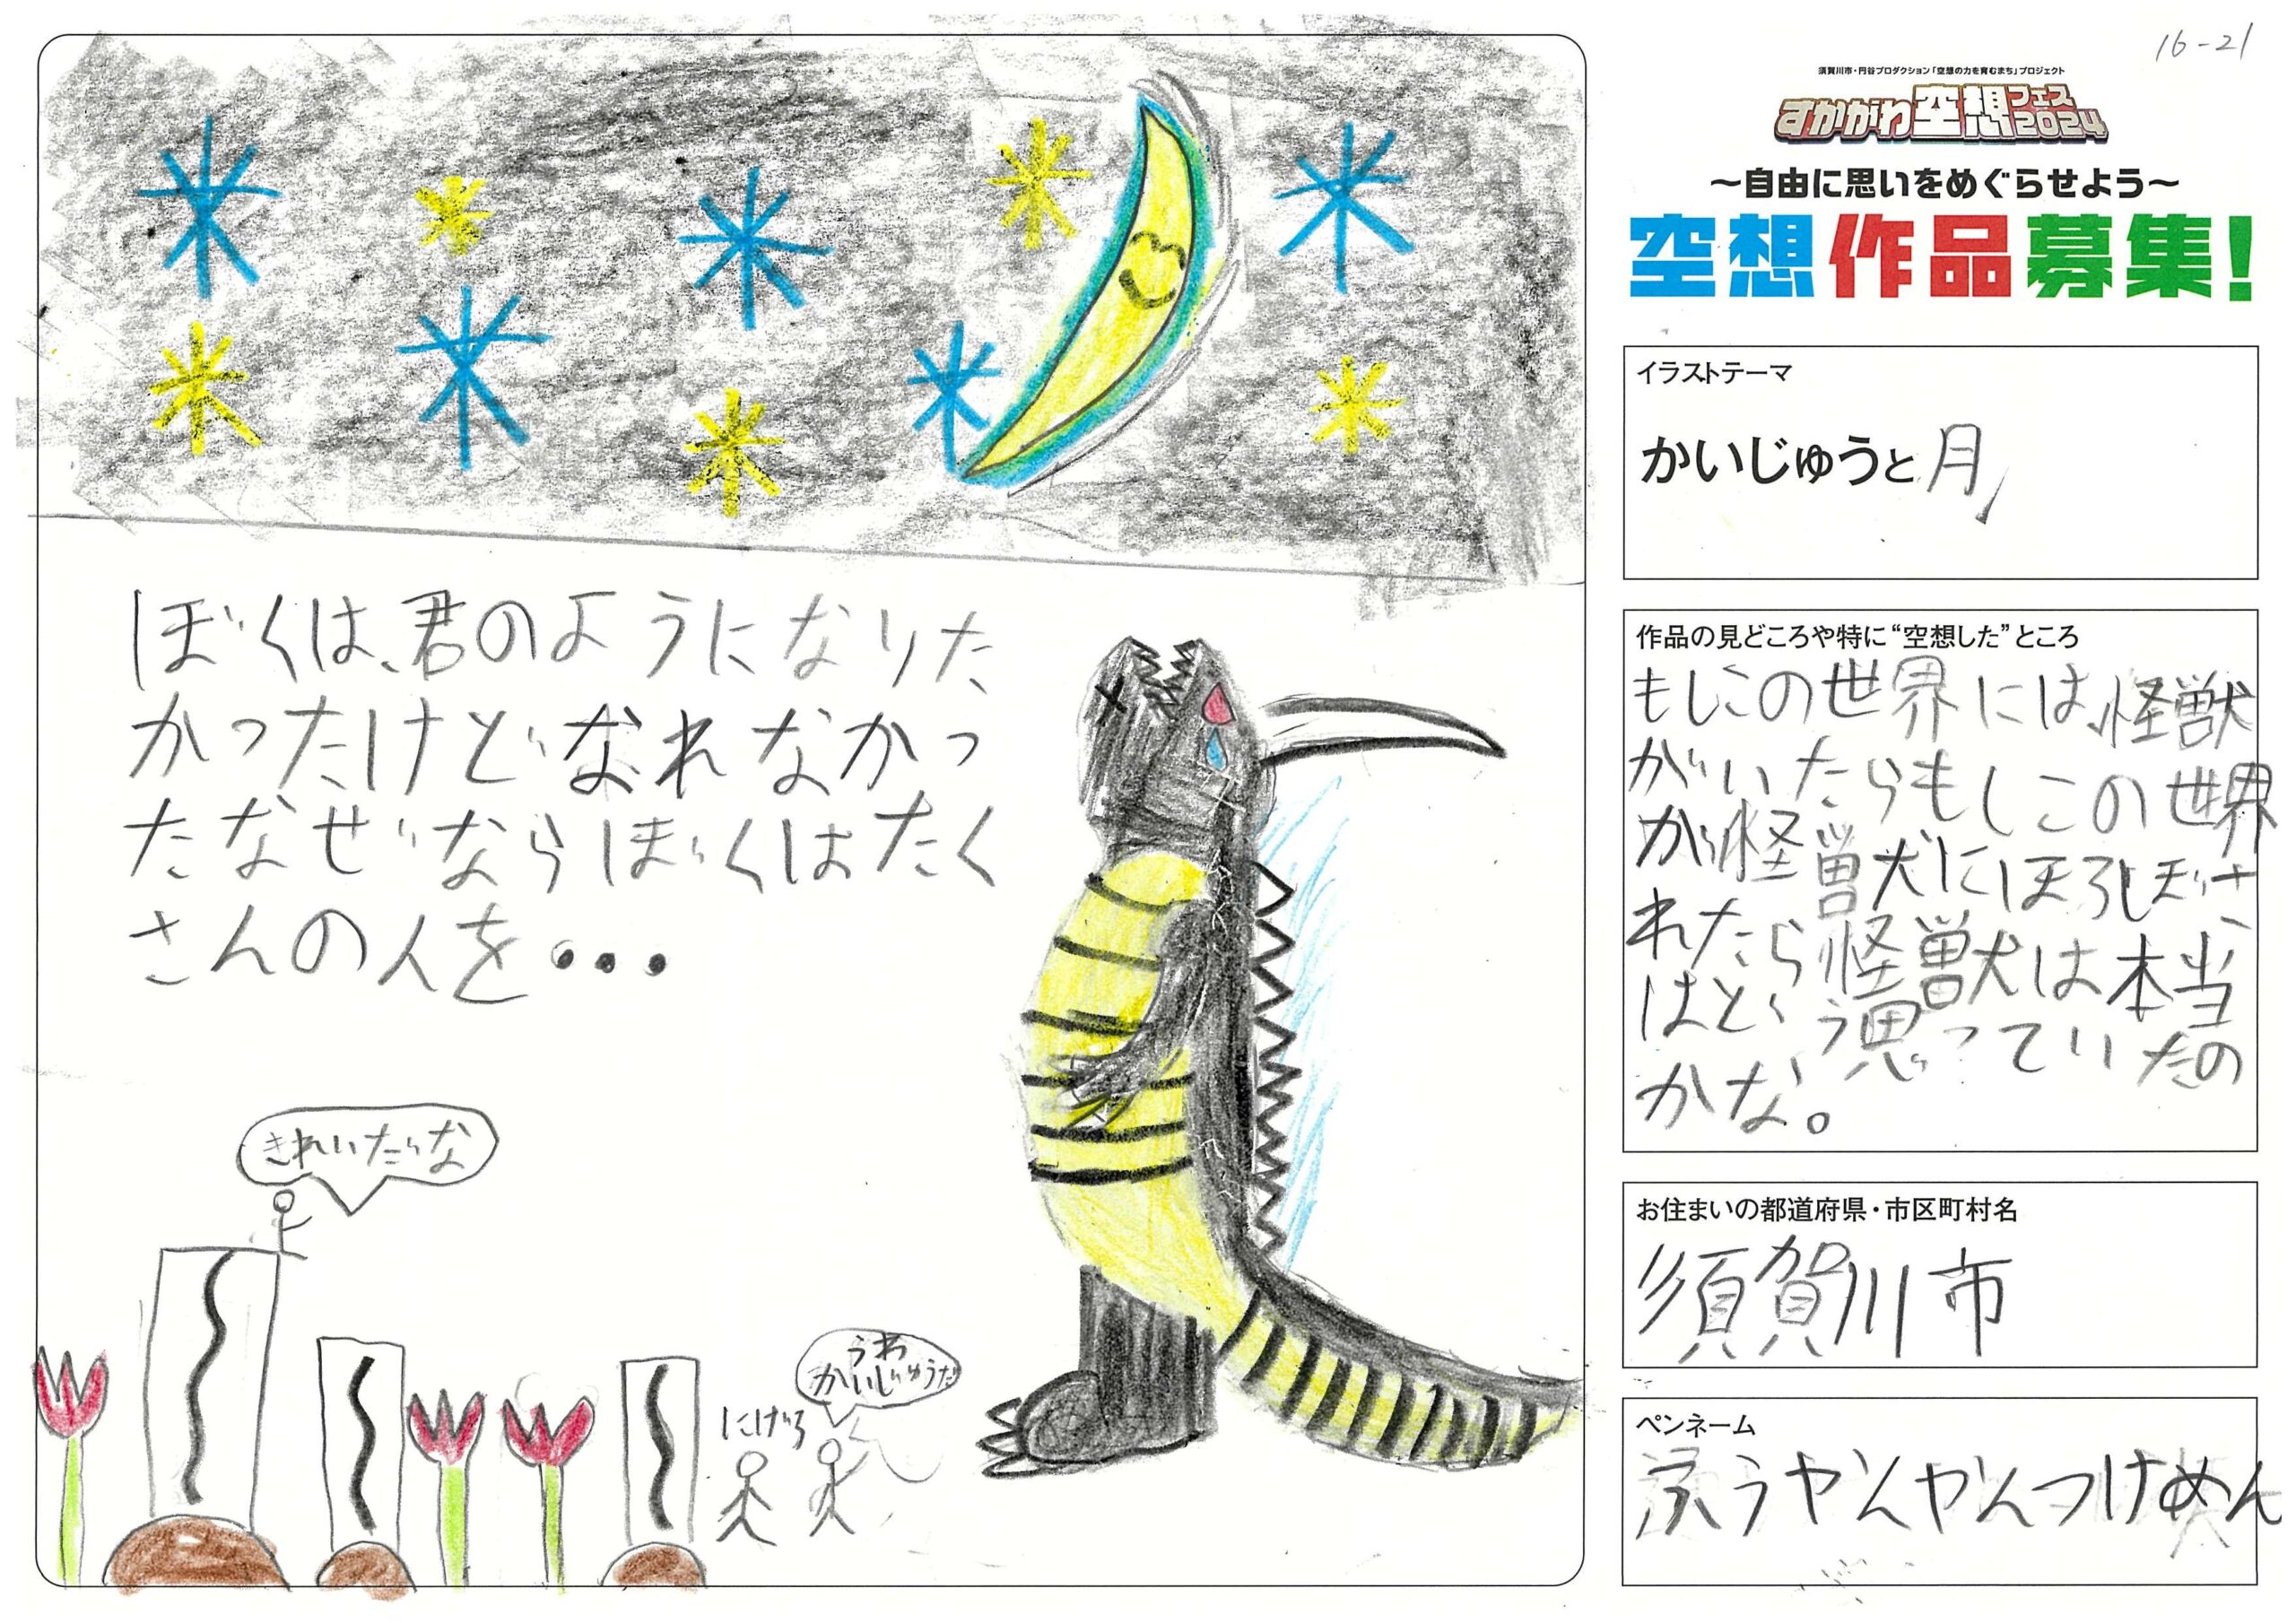 16-21
須賀川市・円谷プロダクション「空想の力を育むまち」プロジェクト
すかがわ空想フェス2024
～自由に思いをめぐらせよう～
空想作品募集!
イラストテーマ
かいじゅうと月
作品の見どころや特に“空想した”ところ
もしこの世界には、怪獣
がいたらもしこの世界
が怪獣にほろぼさ
れたら怪獣は本当
はどう思っていたの
かな。
お住まいの都道府県・市区町村名
須賀川市
ペンネーム
うヤんヤんつけめん
ぼくは、君のようになりた
かったけどなれなかっ
たなぜならぼくはたく
さんの人を・・・
きれいだな
うわ
かいじゅうだ
にげろ